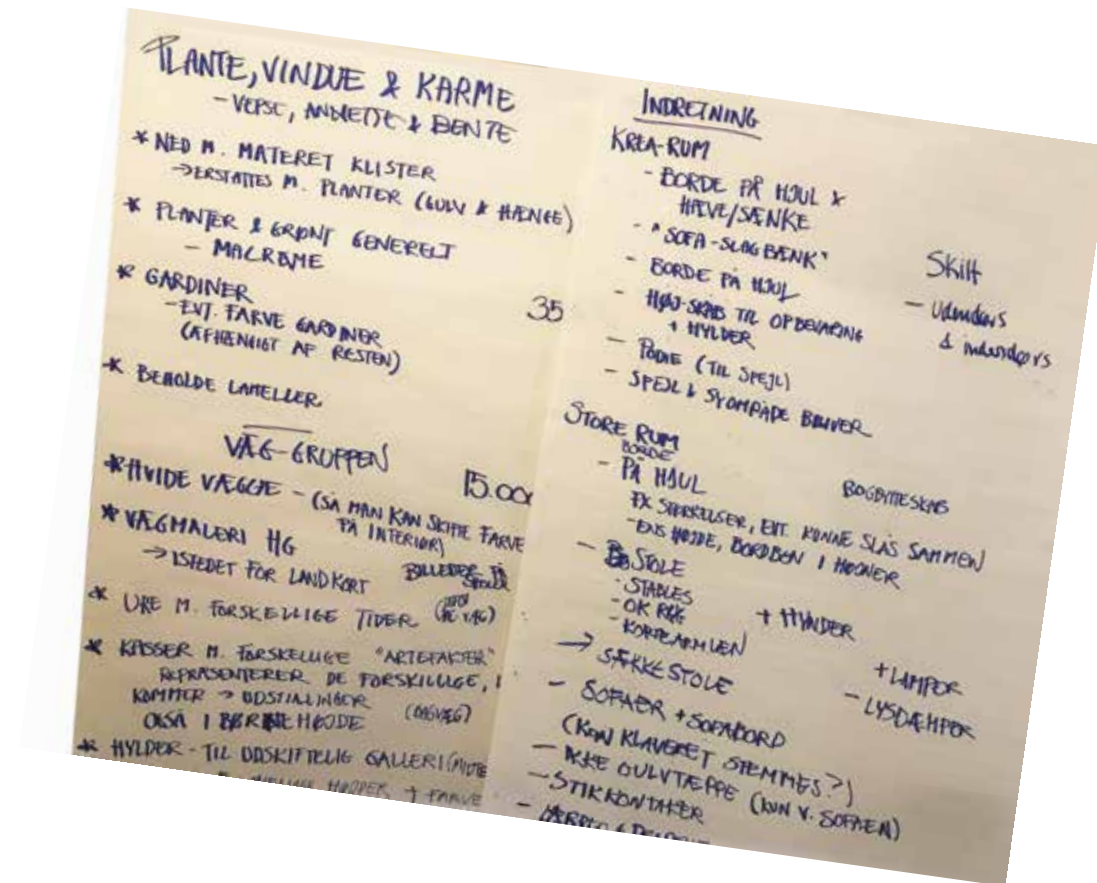 PLANTE, VINDUE & KARME
- VEPSE, ANNETTE & BENTE
* NED M. MATERET KLISTER
→ ERSTATTES M. PLANTER (GULV & HÆNGE)
* PLANTER & GRØNT GENERELT
- MACRAME
* GARDINER
- EVT. FARVE GARDINER
(AFHÆNGIGT AF RESTEN)
35
* BEHOLDE LAMELLER
VÆG-GRUPPEN
15.000
* HVIDE VÆGGE - (SÅ MAN KAN SKIFTE FARVE
PÅ INTERIØR)
* VÆGMALERI HG
→ ISTEDET FOR LANDKORT
BILLEDER PÅ
* URE M. FORSKELLIGE TIDER
* KASSER M. FORSKELLIGE "ARTEFAKTER"
REPRÆSENTERER DE FORSKELLIGE,
KOMMER → UDSTILLINGER
OGSÅ I BØRNEHØJDE
* HYLDER - TIL UDSKIFTELIG GALLERI
+ FARVE
INDRETNING
KREA-RUM
- BORDE PÅ HJUL &
HÆVE/SÆNKE
- "SOFA-SLAGBÆNK"
- BORDE PÅ HJUL
- HØJ-SKAB TIL OPBEVARING
+ HYLDER
- PODIE (TIL SPEJL)
- SPEJL & SYOMRÅDE BLIVER
Skilt
- Udendørs
& indendørs
STORE RUM
BORDE
- PÅ HJUL
FX STØRRELSER, EVT. KUNNE SLÅS SAMMEN
- ENS HØJDE, BORDBEN I HJØRNER
BOGBYTTESKAB
- STOLE
- STABLES
- OK RYG
- KORTE ARMLÆN
+ HYNDER
→ SÆKKESTOLE
+ LAMPER
- LYSDÆMPER
- SOFAER + SOFABORD
(KAN KLAVERET STEMMES?)
- IKKE GULVTÆPPE (KUN V. SOFAEN)
- STIKKONTAKTER